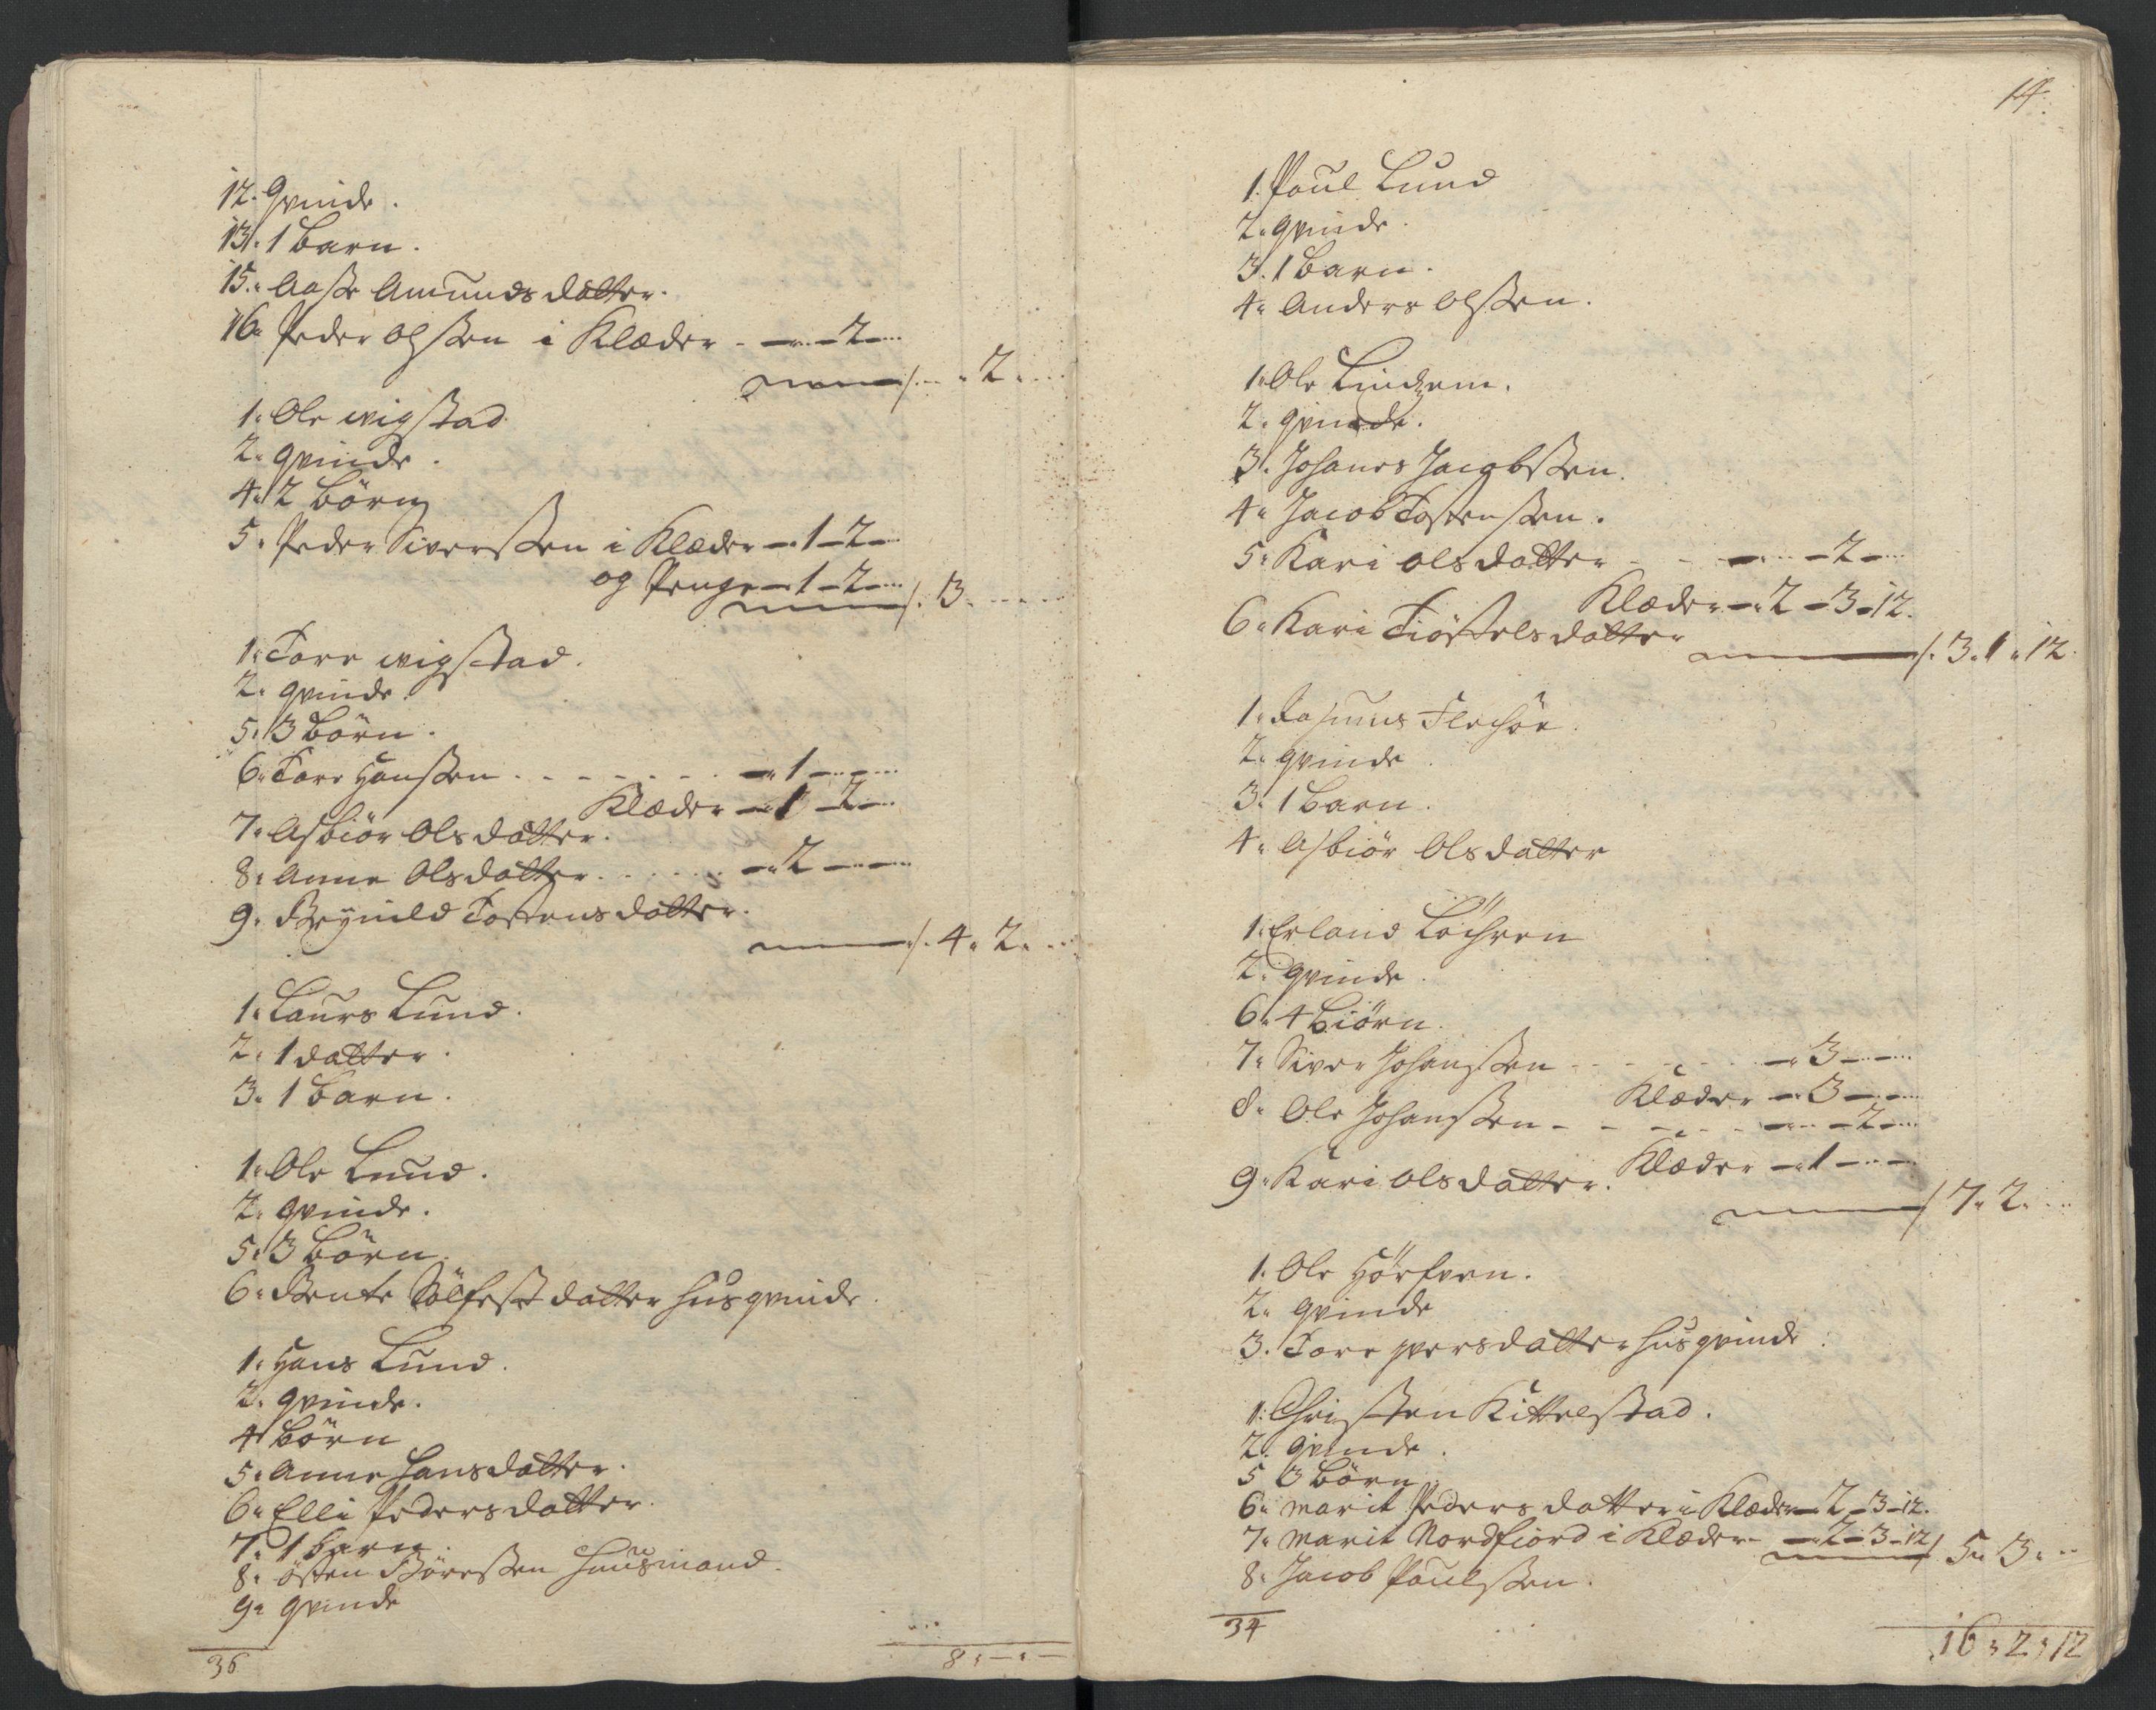 12. Qvinde.
13. 1 Barn.
15. Aase Amunds datter.
16. Peder Olssen i Klæder - 2
/. 2
1. Ole Wigstad
2. Qvinde.
4. 2 Börn
5. Peder Siverssen i Klæder 1-2-
og Penge 1-2-
/. 3.
1. Tore Wigstad.
2. Qvinde.
5. 3 Börn.
6. Tore Hanssen 1
Klæder 1-2
7. Asbiör Ols datter.
8. Anne Olsdatter 2
9. Tostens datter.
/. 4. 2.
1. Laurs Lund.
2. 1 datter.
3. 1 Barn.
1. Ole Lund.
2. Qvinde.
5. 3 Börn.
6. Bente datter Husqvinde.
1. Hans Lund.
2. Qvinde.
4 Börn
5. Anne Hans datter.
6. Elli Peders datter.
7. 1 Barn.
8. östen Huusmand.
9. Qvinde
36
8 " - " -
14.
1. Poul Lund
2. Qvinde.
3. 1 Barn.
4. Anders Olssen.
1. Ole Lindsem.
2. Qvinde.
3. Johanes Jacobssen.
4. Jacob Tostenssen.
5. Kari Ols datter - 2
Klæder 2-3-12.
6. Kari datter
/. 3. 1. 12.
1. Rasmus
2. Qvinde
3. 1 Barn.
4. Asbiör Ols datter
1. Erland Löchren
2. Qvinde.
6. 4 Biörn.
7. Siver Johanssen 3
Klæder 3
8. Ole Johanssen - 2
Klæder 1
9. Kari Ols datter.
/ 7. 2.
1. Ole
2. Qvinde
3. Tore Iversdatter Husqvinde.
1. Christen Kittelstad.
2. Qvinde.
5 3 Börn
6. Marit Peders datter i Klæder 2-3-12.
7. Marit Nordfiord i Klæder 2-3-12
/ 5. 3.
8. Jacob Poulssen.
34
16 " 2 " 12